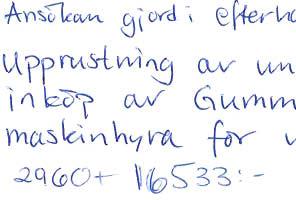 Ansökan gjord i efterh
Upprustning av un
inköp av Gumm
maskinhyra för v
2960+ 16533:-